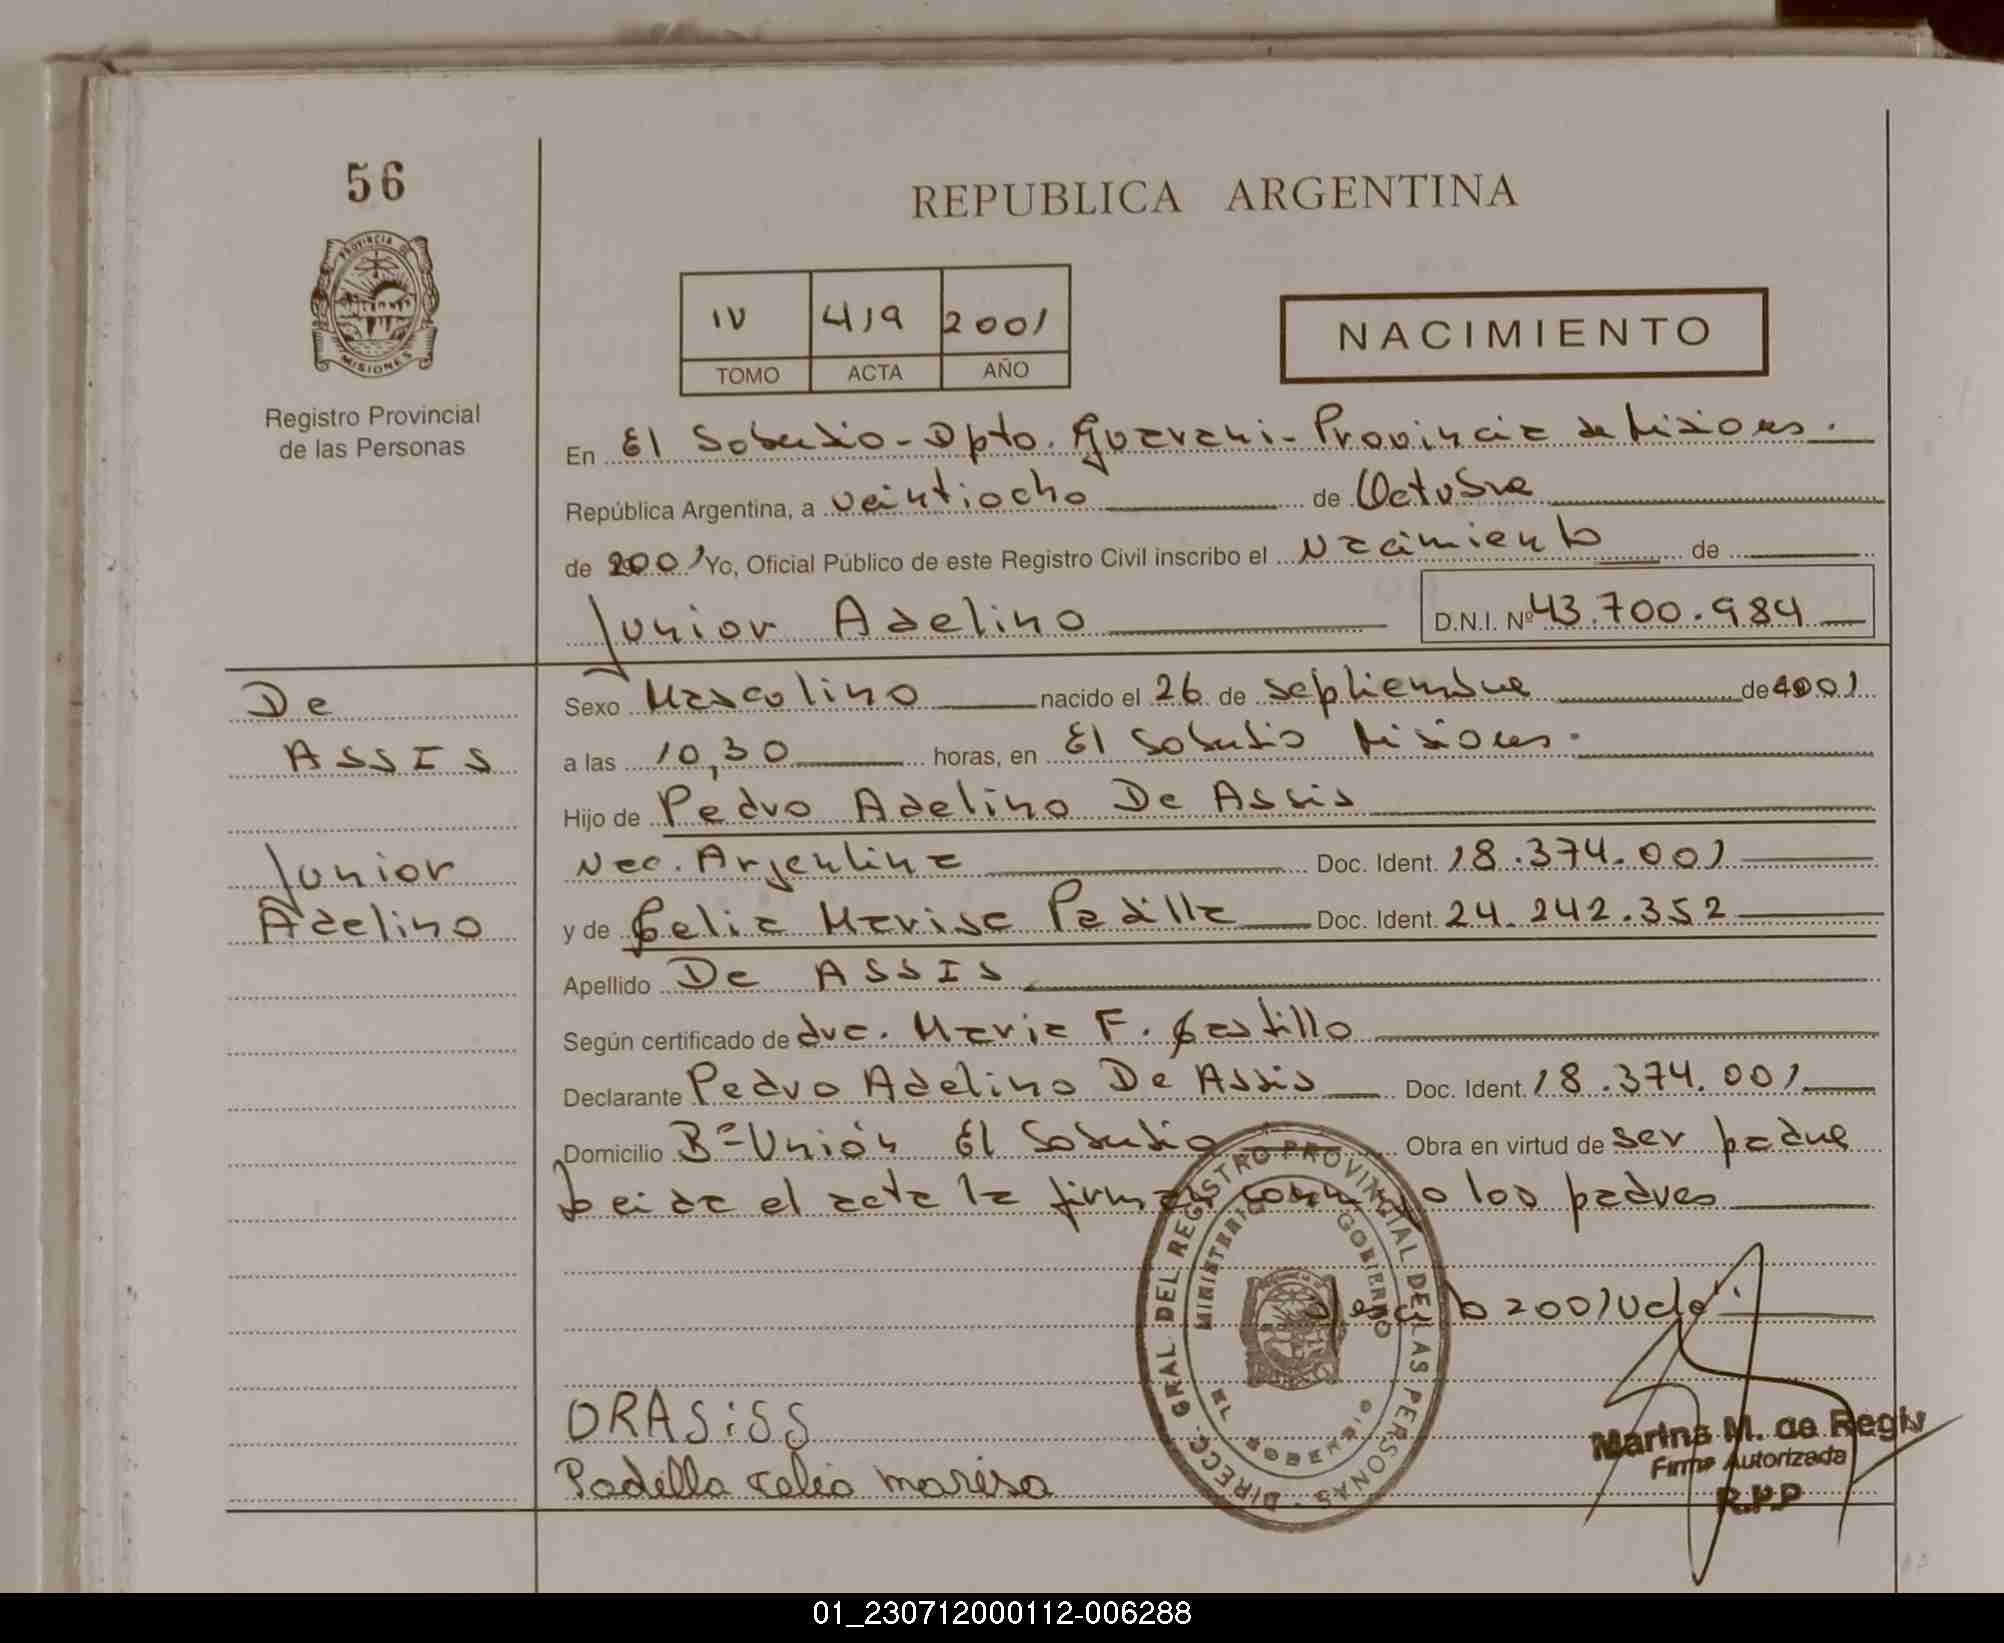 56
REPUBLICA ARGENTINA
PROVINCIA DE
MISIONES
Registro Provincial
de las Personas
IV 419 2001
TOMO ACTA AÑO
NACIMIENTO
En El Soberbio - Dpto. Guarani - Provincia de Misiones.
República Argentina, a veintiocho de Octubre
de 2001 Yo, Oficial Público de este Registro Civil inscribo el Nacimiento de
Junior Adelino D.N.I. Nº 43.700.984
De
ASSIS
Junior
Adelino
Sexo Masculino nacido el 26 de septiembre de 2001
a las 10,30 horas, en El Soberbio Misiones.
Hijo de Pedro Adelino De Assis
Nac. Argentina Doc. Ident. 18.374.001
y de Celia Marisa Padilla Doc. Ident. 24.242.352
Apellido De ASSIS
Según certificado de dra. Maria F. Castillo
Declarante Pedro Adelino De Assis Doc. Ident. 18.374.001
Domicilio Bº Unión El Soberbio Obra en virtud de ser padre
Leida el acta la firman conmigo los padres
2001 Vale
DIRECC. GRAL DEL REGISTRO PROVINCIAL DE LAS PERSONAS
MINISTERIO DE GOBIERNO
EL SOBERBIO
ORASiSS
Padilla Celia Marisa
Marina M. de Regis
Firma Autorizada
R.P.P
01_230712000112-006288